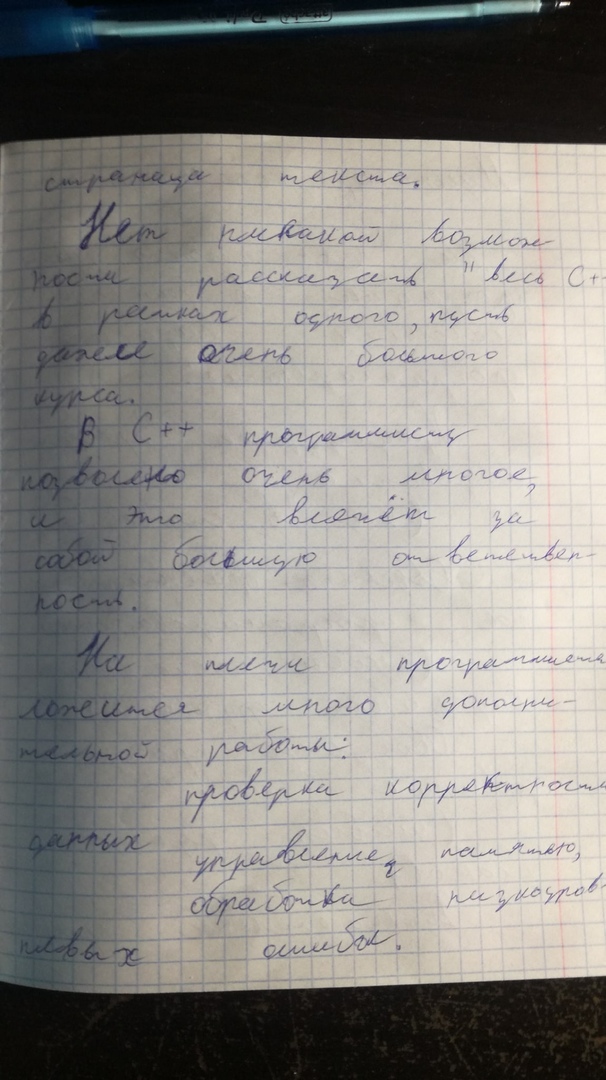 страница текста.
Нет никакой возмож
ности рассказать "весь C+
в рамках одного, пусть
даже очень большого
курса.
В C++ программисту
позволено очень многое,
и это влечёт за
собой большую ответствен-
ность.
На плечи программиста
ложится много дополни-
тельной работы:
проверка корректности
данных
управление памятью,
обработки низкоуров-
невых ошибок.